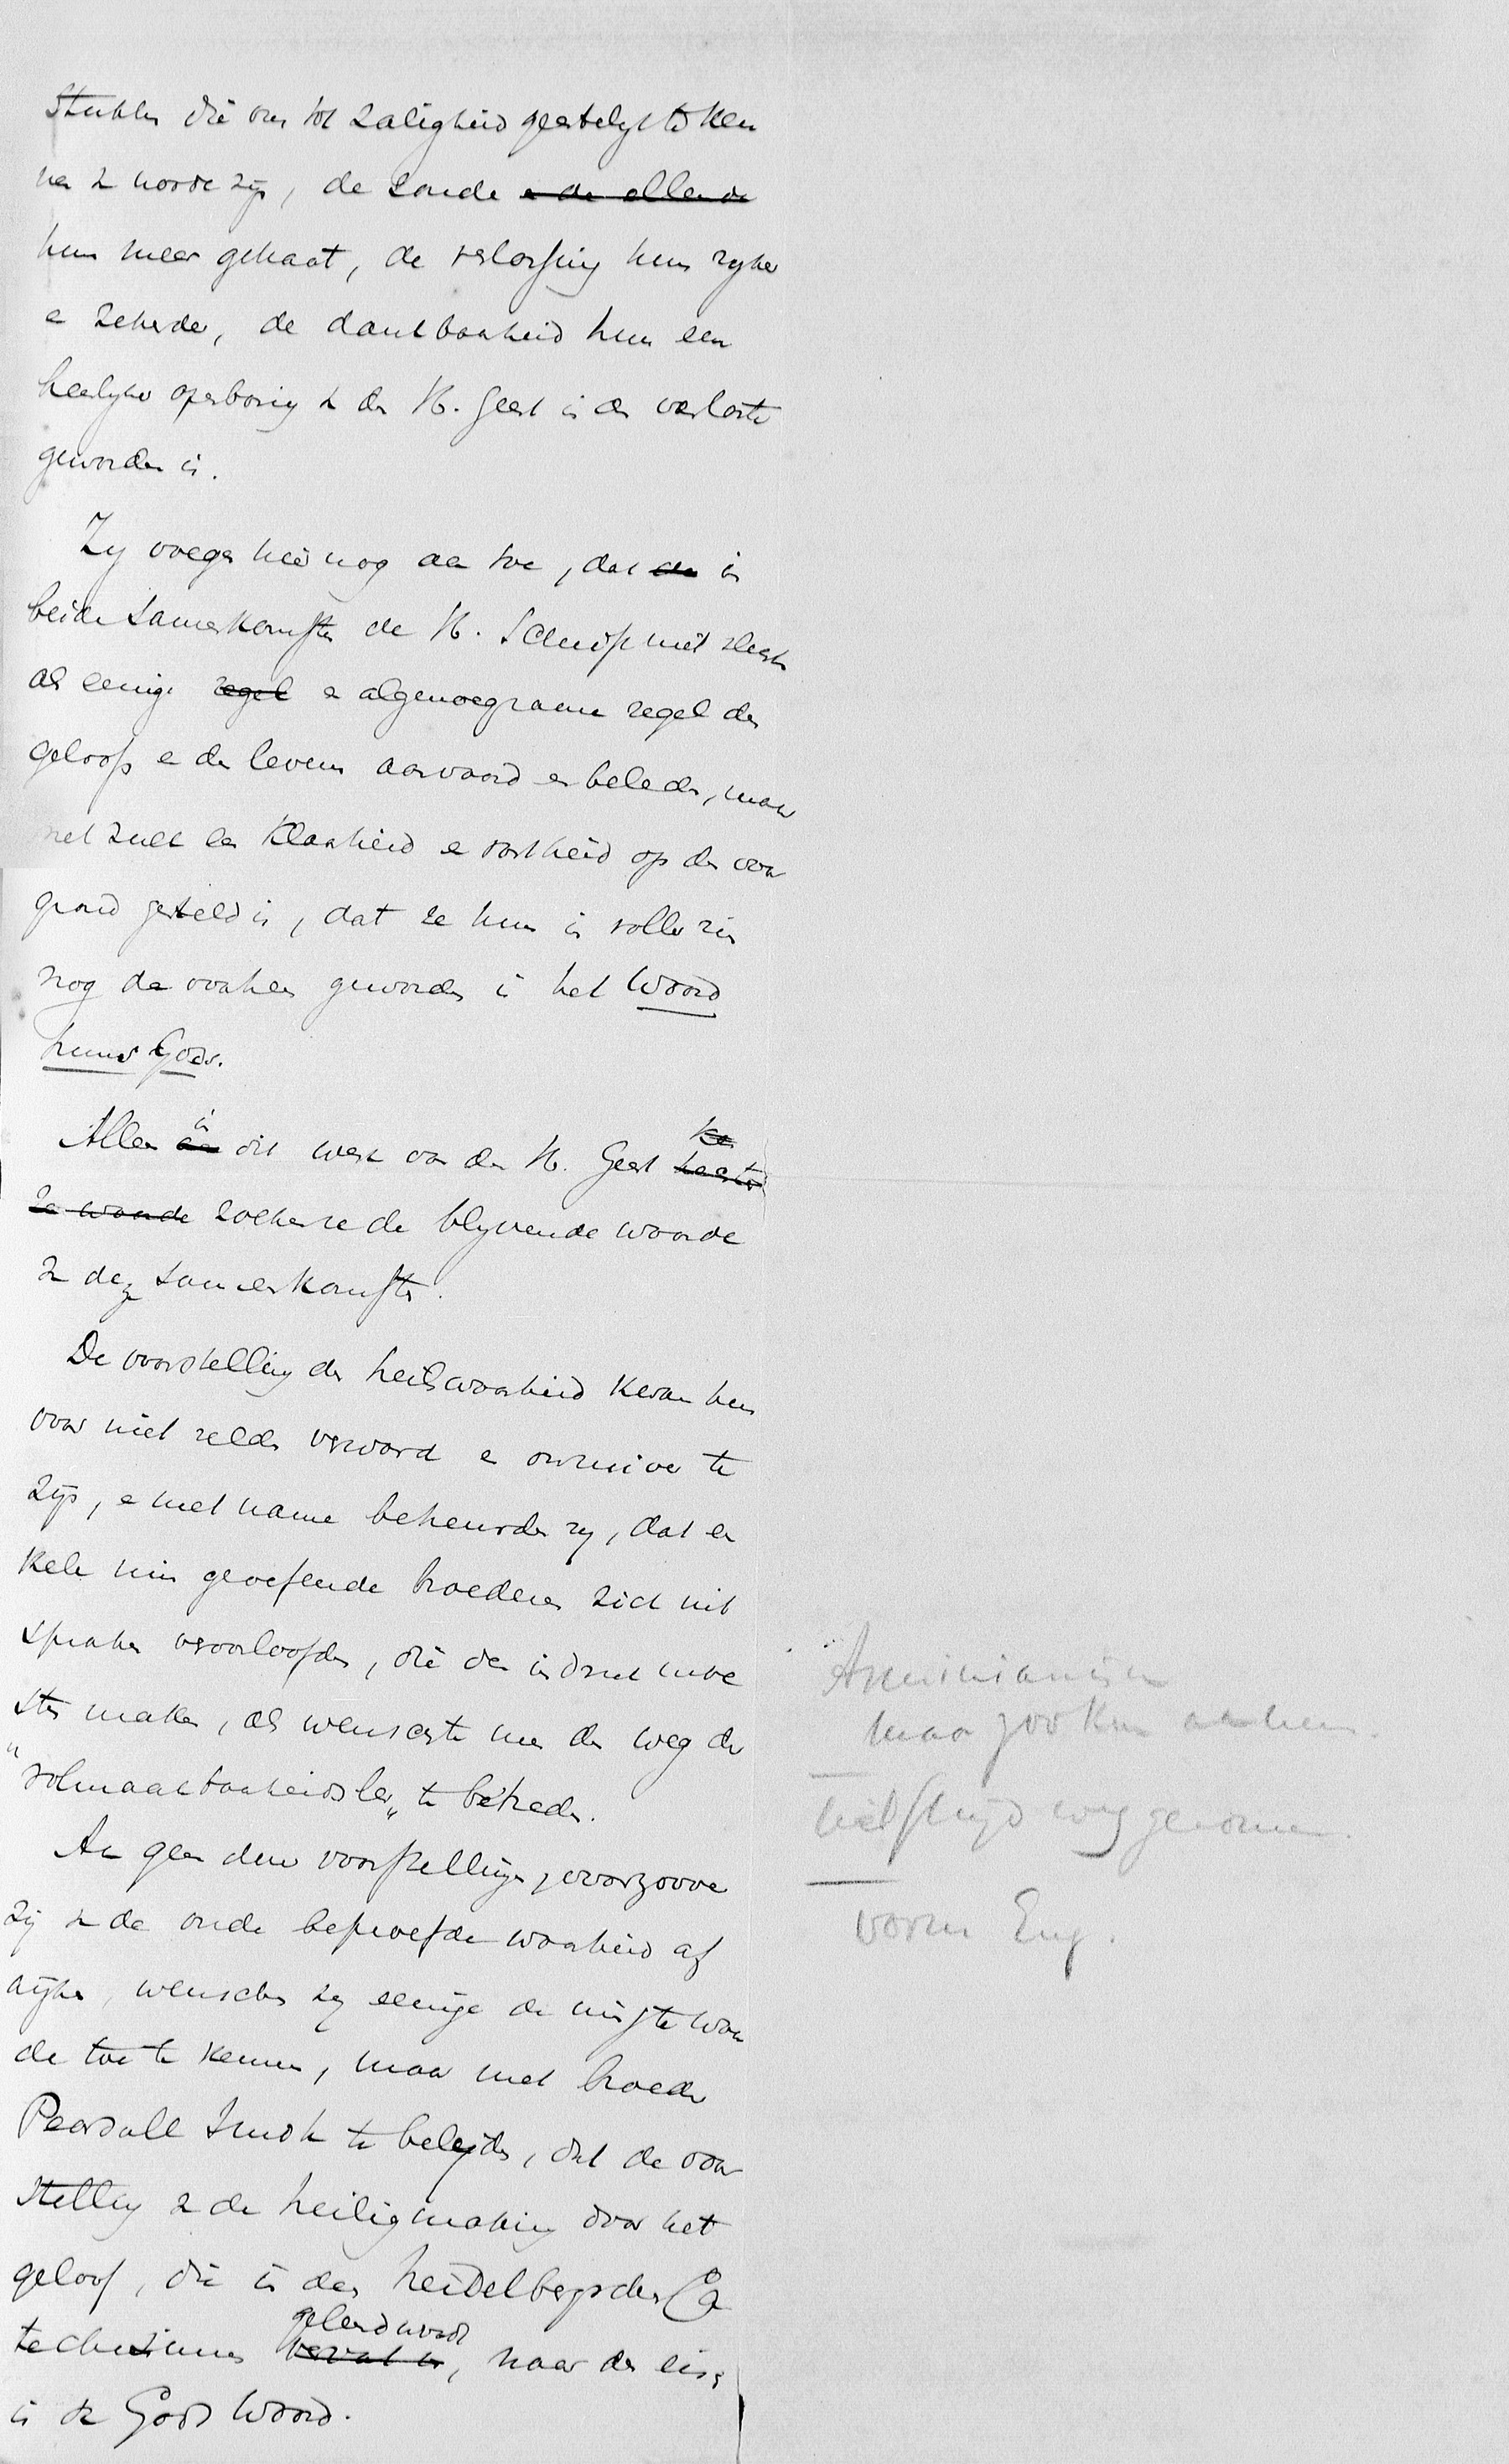 Stukken die ons tot zaligheid geestelyk te ken
nen van noode zyn, de zonde <s>en de ellende</s>
hun meer gehaat, de verlossing hun ryker
en zekerder, de dankbaarheid hun een
heerlyker openbaring van den H. Geest in den verloste
geworden is.
Zy voegen hier nog aan toe, dat in
beide samenkomsten de H. Schrift niet slechts
als eenige <s>regel</s> en algenoegzame regel des
geloofs en des levens aanvaard en beleden, maar
met zulk een klaarheid en vastheid op den voor
grond gesteld is, dat ze hun in voller zin
nog dan voorheen geworden is het Woord
huns Gods.
Alleen in dit werk van den H. Geest
<s>de waarde</s> zoeken ze de blyvende waarde
van deze samenkomsten.
De voorstelling der heilswaarheid kwam hun
voor niet zelden verward en onzuiver te
zyn, en met name betreurden zy, dat en
kele min geoefende broederen zich uit
spraken veroorloofden, die den indruk moe
sten maken, als wenschte men den weg der
"volmaakbaarheidsleer" te betreden.
Aan geen dier voorstellingen, voorzoover
zij van de oude beproefde waarheid af
wijken, wenschen zy eenige de minste waar
de toe te kennen, maar met broeder
Pearsall Smith te belyden, dat de voor
stelling van de heiligmaking door het
geloof, die in den Heidelbergschen Ca
techismus geleerd wordt <s>vervat is</s>, naar den eisch
is van Gods Woord.
Arminianisme
maar zoo kun
weggenomen.
vorm Eng.